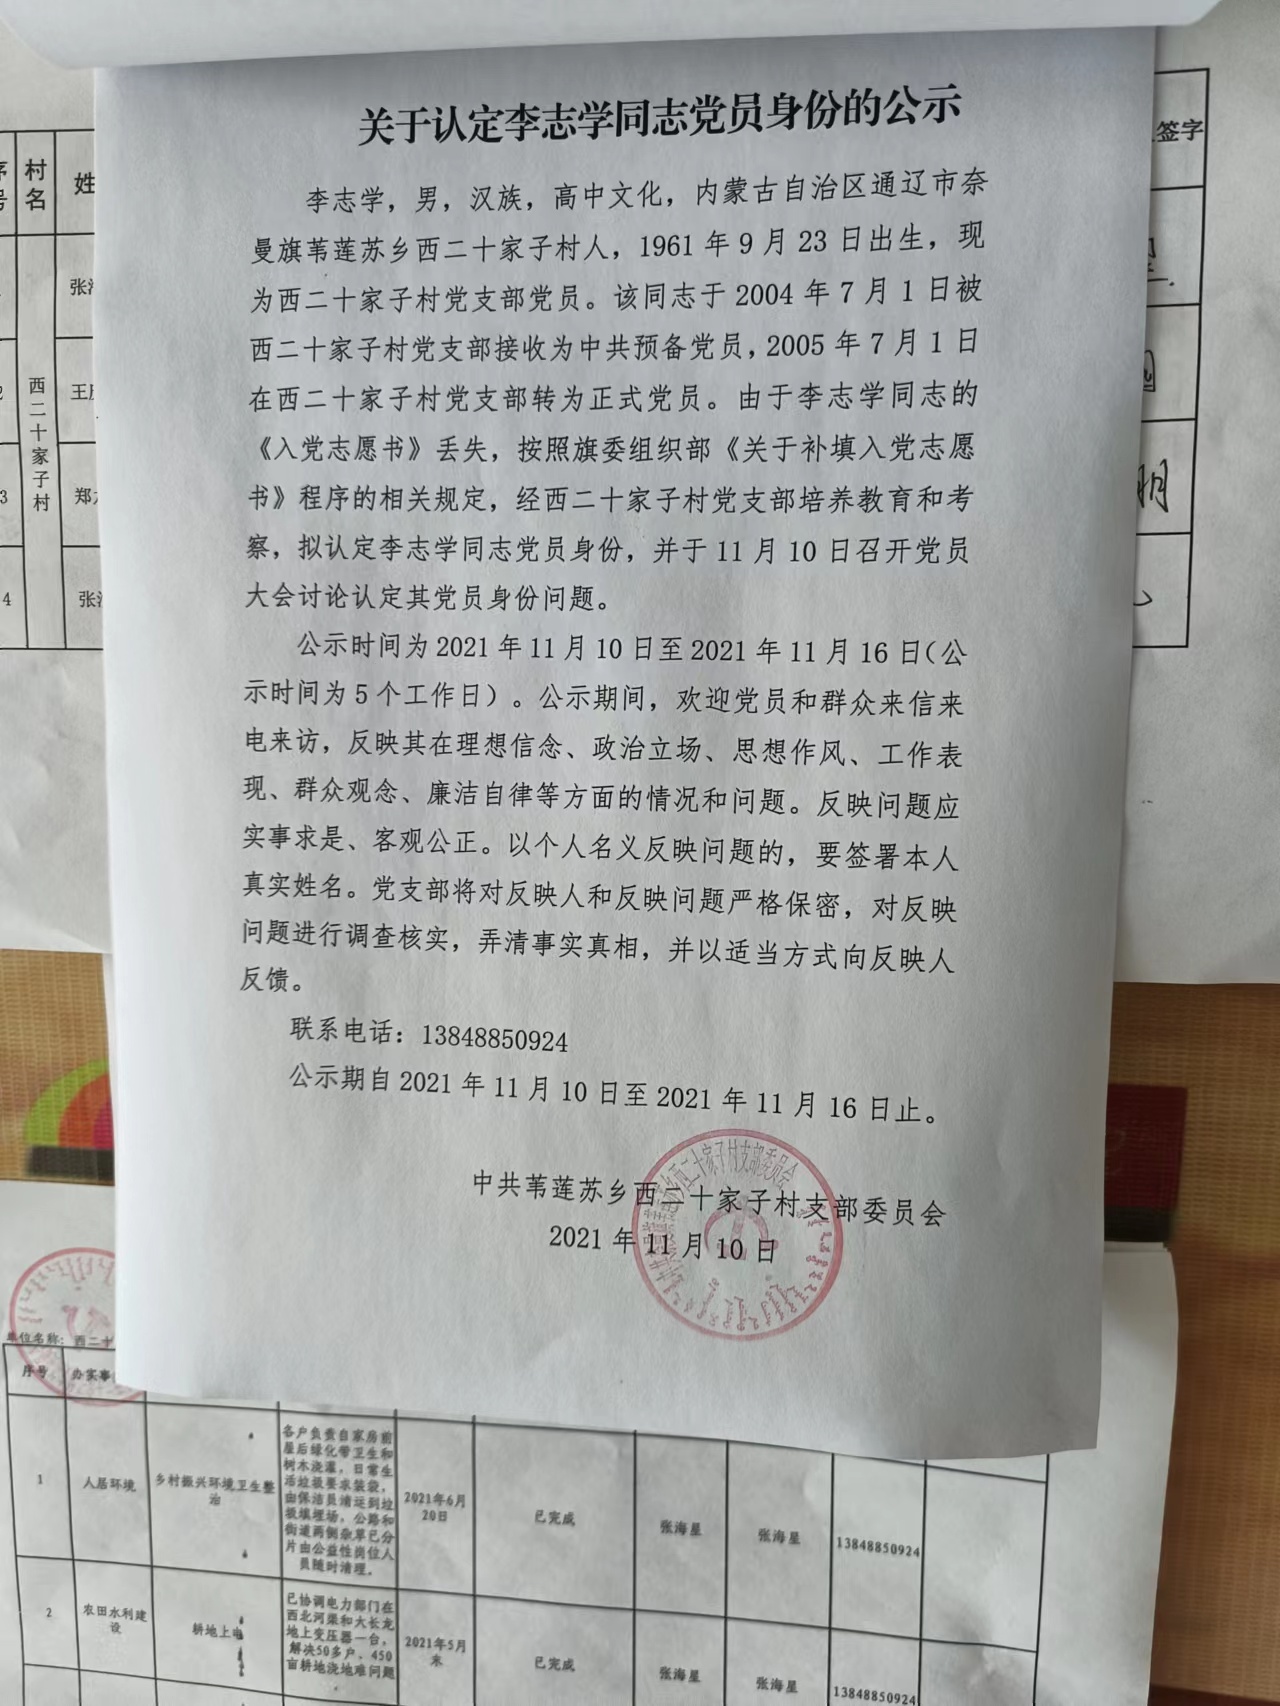 关于认定李志学同志党员身份的公示
李志学，男，汉族，高中文化，内蒙古自治区通辽市奈
曼旗苇莲苏乡西二十家子村人，1961年9月23日出生，现
为西二十家子村党支部党员。该同志于2004年7月1日被
西二十家子村党支部接收为中共预备党员，2005年7月1日
在西二十家子村党支部转为正式党员。由于李志学同志的
《入党志愿书》丢失，按照旗委组织部《关于补填入党志愿
书》程序的相关规定，经西二十家子村党支部培养教育和考
察，拟认定李志学同志党员身份，并于11月10日召开党员
大会讨论认定其党员身份问题。
公示时间为2021年11月10日至2021年11月16日（公
示时间为5个工作日）。公示期间，欢迎党员和群众来信来
电来访，反映其在理想信念、政治立场、思想作风、工作表
现、群众观念、廉洁自律等方面的情况和问题。反映问题应
实事求是、客观公正。以个人名义反映问题的，要签署本人
真实姓名。党支部将对反映人和反映问题严格保密，对反映
问题进行调查核实，弄清事实真相，并以适当方式向反映人
反馈。
联系电话：13848850924
公示期自2021年11月10日至2021年11月16日止。
中共苇莲苏乡西二十家子村支部委员会
2021年11月10日
村名
姓
签字
西二十家子村
张
王
3
郑
明
4
张
单位名称：西二十
序号
办实事
1
人居环境
乡村振兴环境卫生整
治
各户负责自家房前
屋后绿化带卫生和
树木浇灌，日常生
活垃圾要求装袋，
由保洁员清运到垃
圾填埋场，公路和
街道两侧杂草已分
片由公益性岗位人
员随时清理。
2021年6月
20日
已完成
张海星
张海星
13848850924
2
农田水利建
设
耕地上电
已协调电力部门在
西北河渠和大长龙
地上变压器一台，
解决50多户、450
亩耕地浇地难问题
2021年5月
末
已完成
张海星
张海星
13848850924